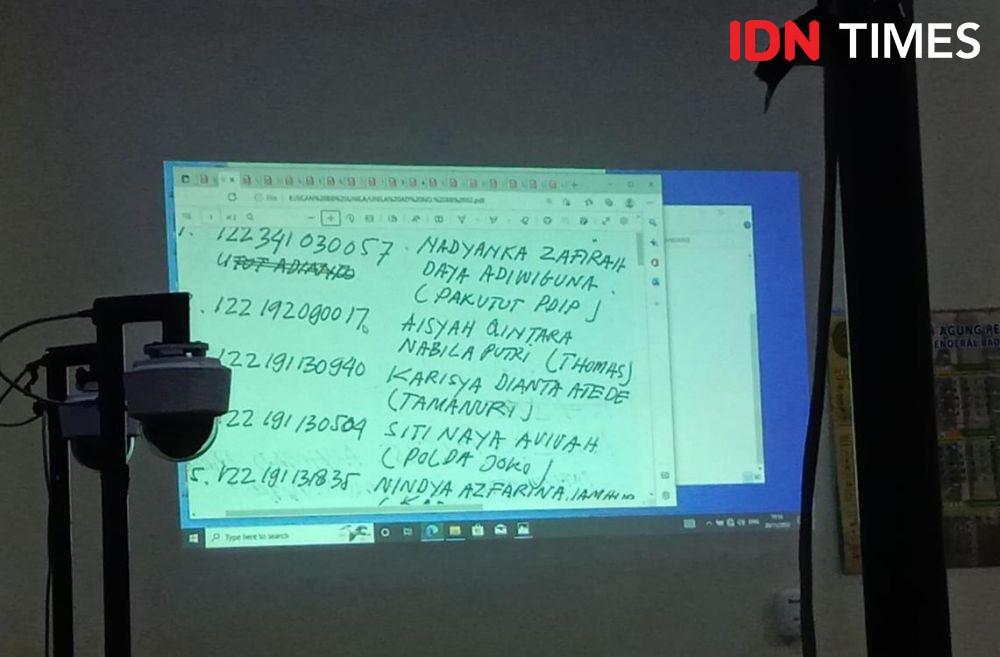 IDN TIMES
File
1. 122341030057 NADYANKA ZAFIRAH
DAYA ADIWIGUNA
(PAKUTUT PDIP)
122192090017 AISYAH QINTARA
NABILA PUTRI (THOMAS)
122191130940 KARISYA DIANTA ATEDE
(TAMANURI)
122191130504 SITI NAYA AVIVAH
(POLDA JOKO)
5. 122191131835 NINDYA AZFARYNA
Type here to search
ENG
AGUNG RE